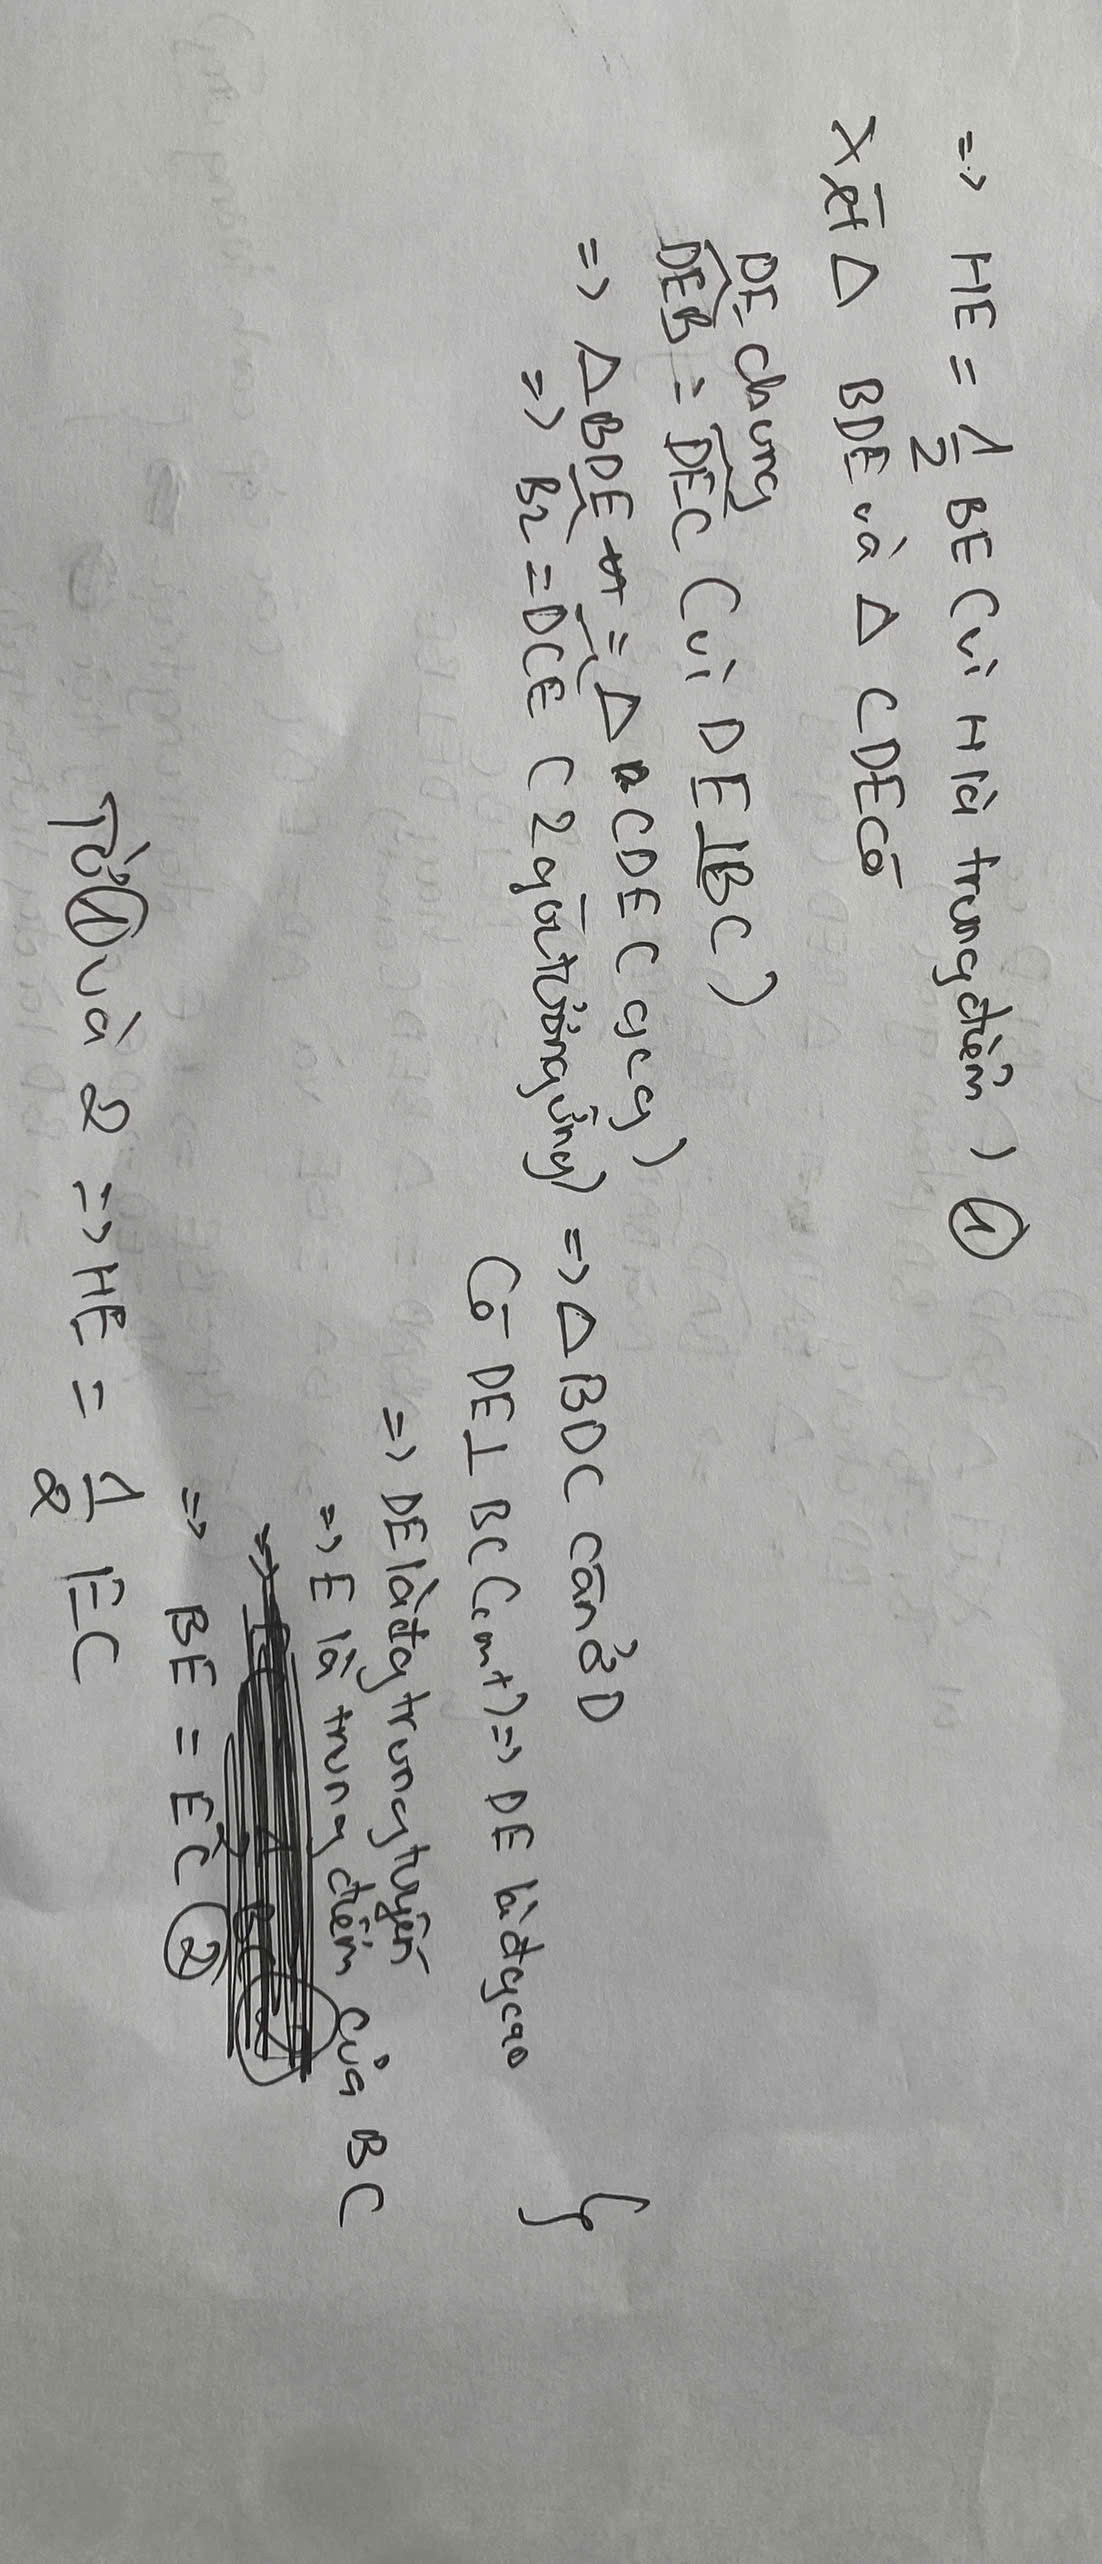 => HE = 1/2 BE (vì H là trung điểm) ①
Xét Δ BDE và Δ CDE có
DE chung
DEB = DEC (vì DE ⊥ BC)
=> Δ BDE = Δ CDE (gcg)
=> B2 = DCE (2 góc tương ứng) => Δ BDC cân ở D
Có DE ⊥ BC (cmt) => DE là đg cao
=> DE là đg trung tuyến
=> E là trung điểm của BC
=> BE = EC ②
Từ ① và 2 => HE = 1/2 EC